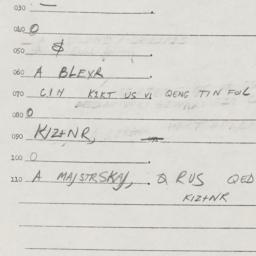 030
040 0
050 $
060 A BLEYR
070 CIH KIKT US VI QENG TIN FOL
080 0
090 KIZ+NR,
100 0
110 A MAJSTRSKAJ, & RUS QED
KIZ+NR